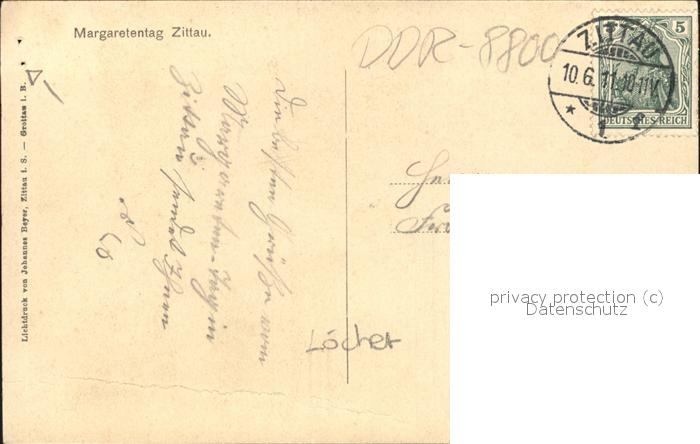 Margaretentag Zittau.
DDR-8800
5
ZITTAU
10.6.11.10-11V.
* 1 z
DEUTSCHES REICH
Lichtdruck von Johannes Beyer, Zittau i. S. — Grottau i. B.
Die besten Grüße vom
Margareten-Tag in
Zittau sendet Ihnen
Löcher
privacy protection (c)
Datenschutz